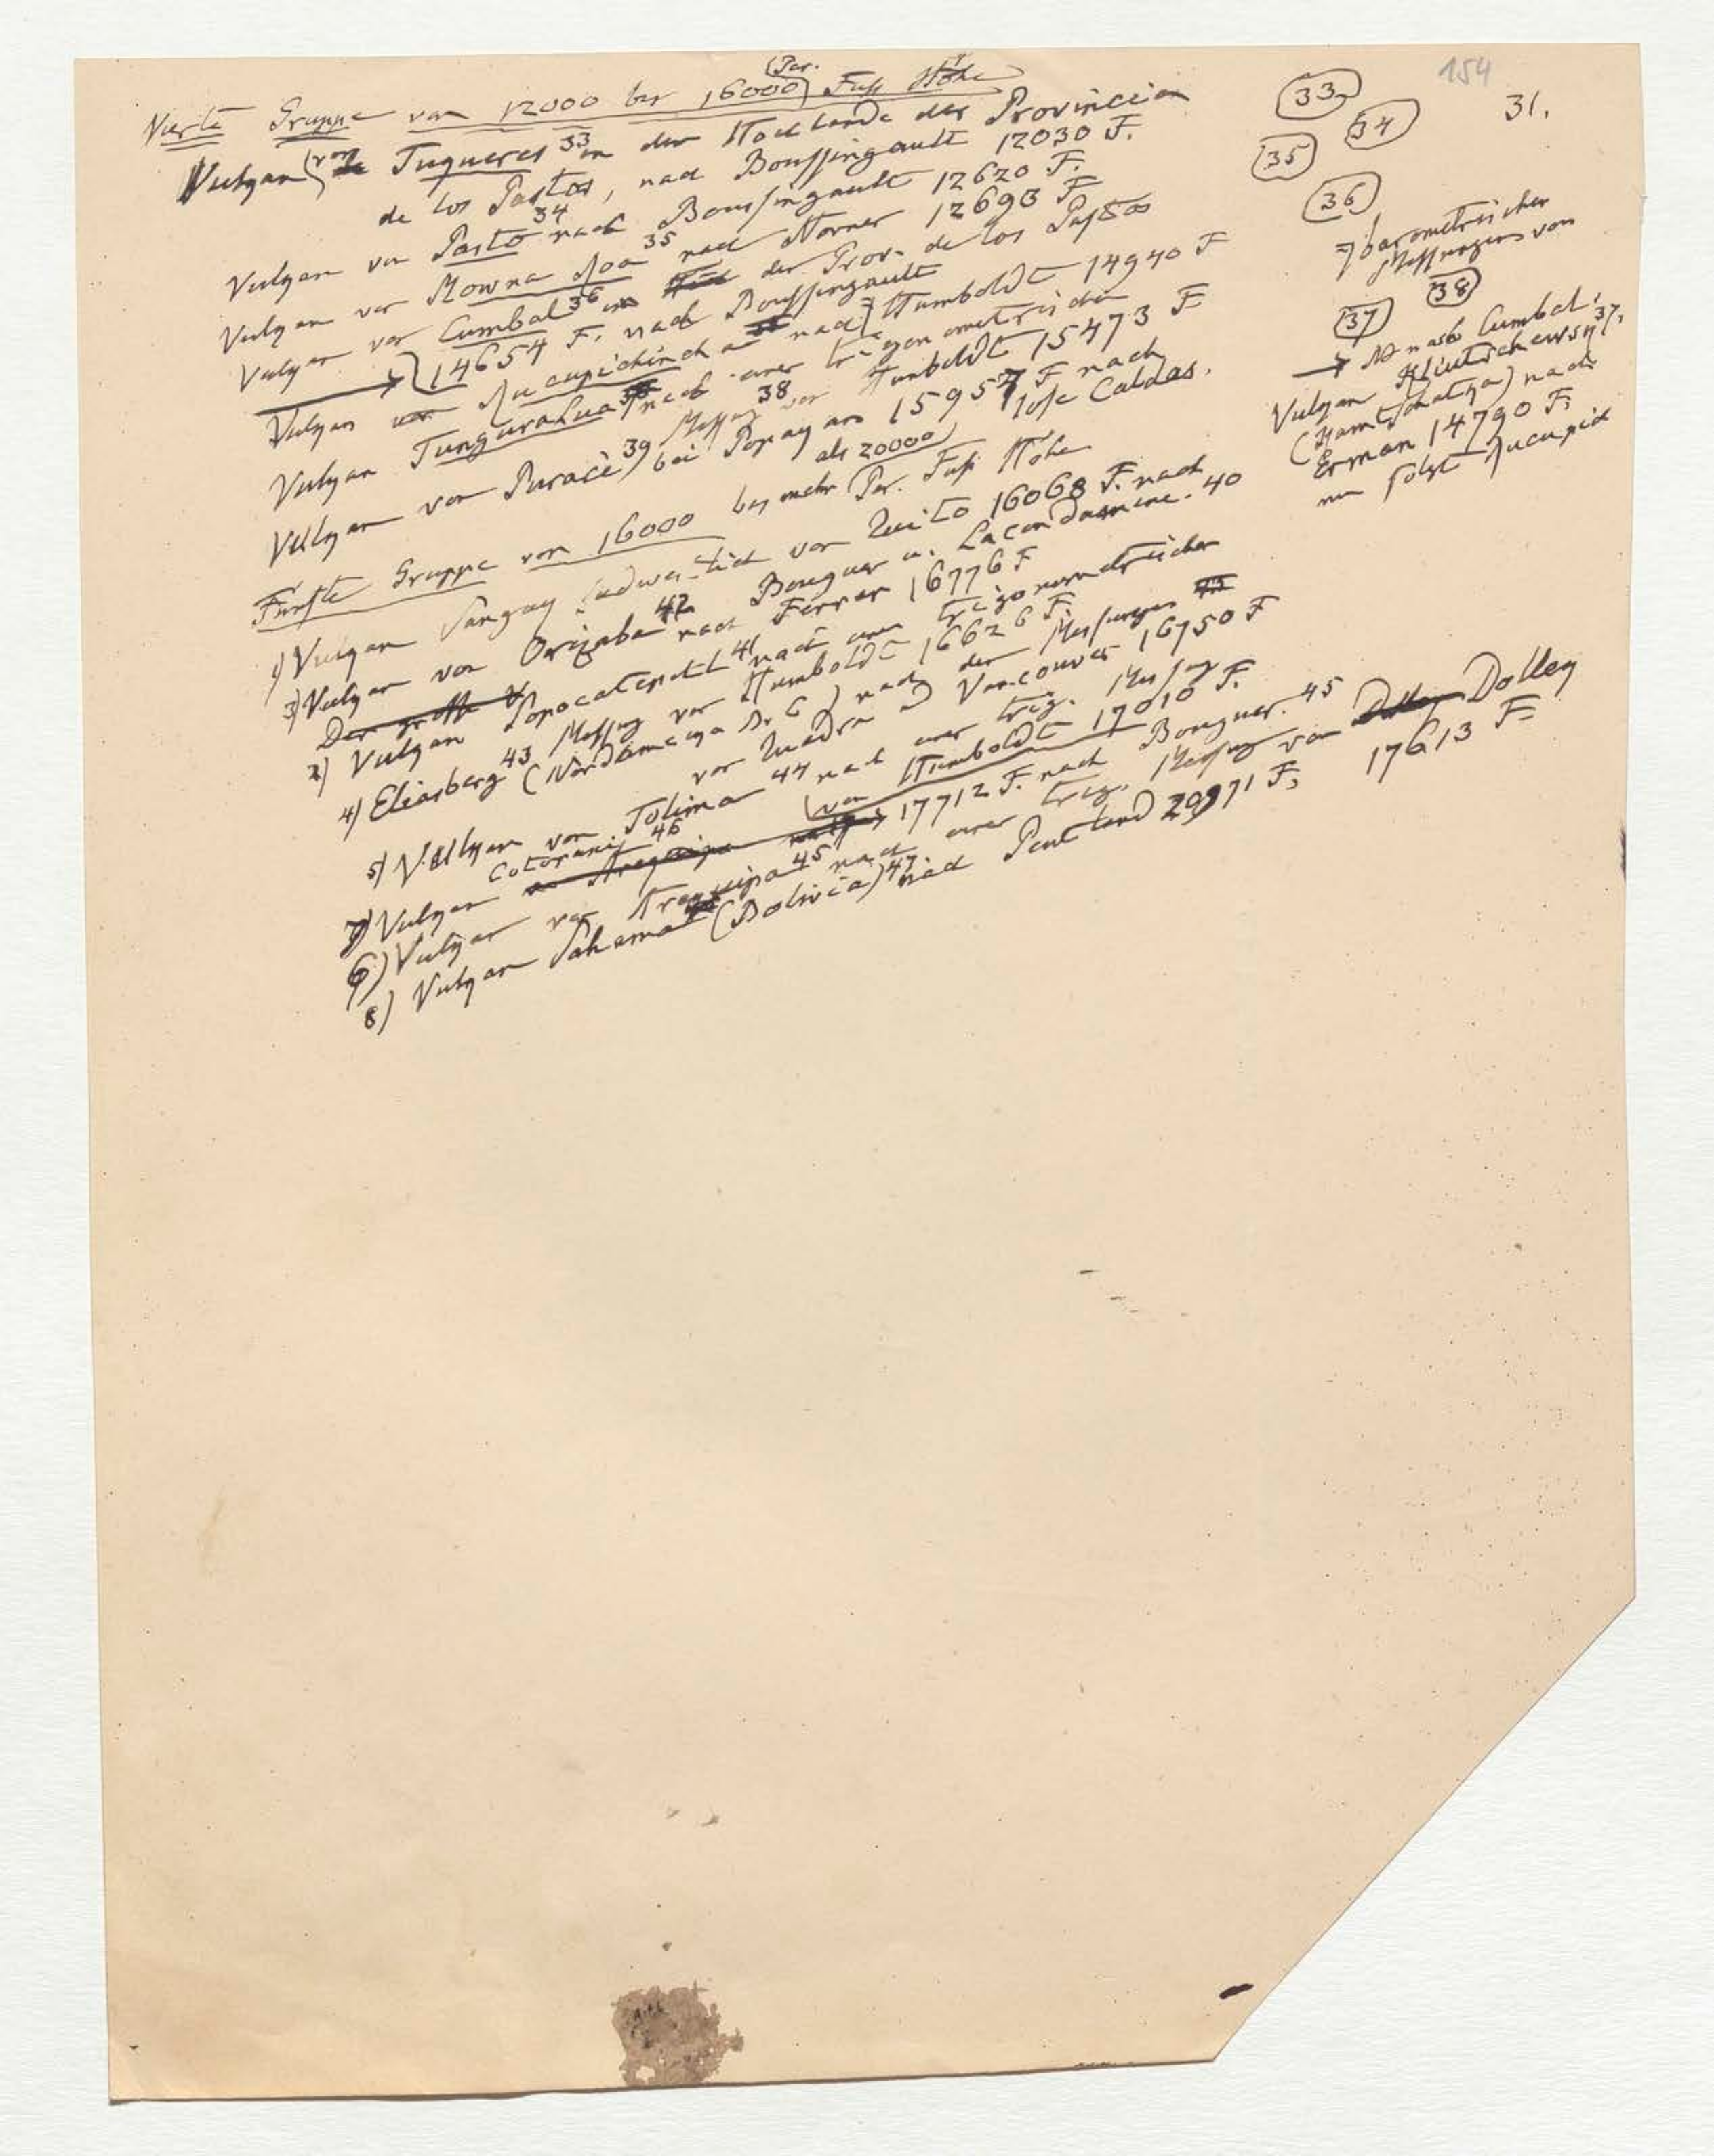 154
31.
Vierte Gruppe von 12000 bis 16000 (Par.) Fuß Höhe
Vulkan (von Tuqueres 33 in dem Hochlande der Provincia
de los Pastos, nach Boussingault 12030 F.
Vulkan von Pasto 34 nach Boussingault 12620 F.
Vulkan von Mowna Roa 35 nach Horner 12693 F
Vulkan von Cumbal 36 in der Prov. de los Pastos
14654 F. nach Boussingault
Vulkan Rucupichincha nach Humboldt 14940 F
Vulkan Tungurahua nach einer trigonometrischen
Messung 38 von Humboldt 15473 F
Vulkan von Puracé 39) bei Popayan 15957 F nach
Jose Caldas.
Fünfte Gruppe von 16000 bis mehr als 20000 Par. Fuß Höhe
1) Vulkan Sangay südwestlich von Quito 16068 F. nach
Bouguer u. Lacondamine. 40
3) Vulkan von Orizaba 42 nach Ferrer 16776 F
Der große V
2) Vulkan Popocatepetl 41 nach einer trigonometrischen
Messung von Humboldt 16626 F.
4) Eliasberg 43 (Nordamerika) nach den Messungen
von Quadra und Vancouver 16750 F
5) Vulkan von Tolima 44 nach einer trig. Messung
von Humboldt 17010 F.
7) Vulkan Cotopaxi 46 17712 F. nach Bouguer. 45
6) Vulkan von Arequipa 45 nach einer trig. Messung von Dolley
17613 F
8) Vulkan Sahama (Bolivia) 47 nach Pentland 20971 F.
33
34
35
36
barometrischen
Messungen von
37
38
nach Cumbal.
Vulkan Kliutschewsk 37.
(Kamtschatka) nach
Erman 14790 F.
nun folgt Rucupich